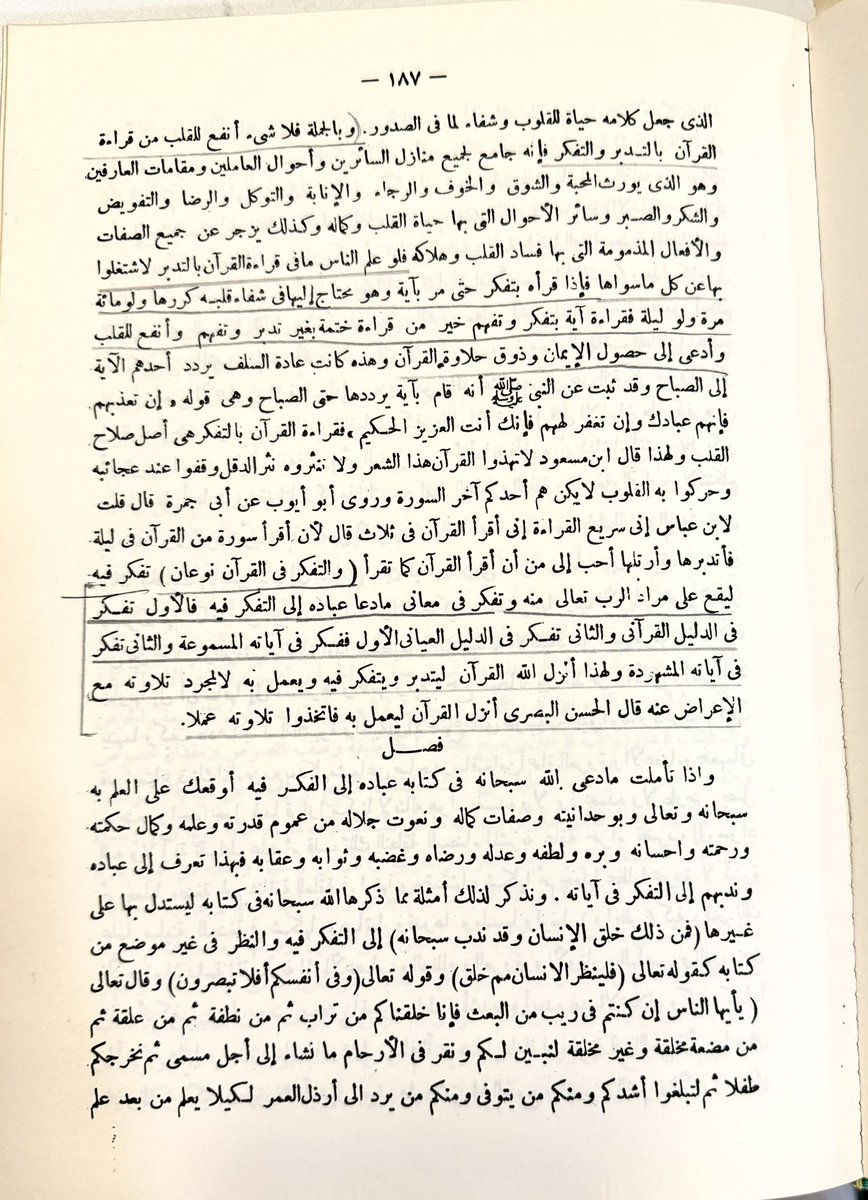 — ١٨٧ —
الذى جعل كلامه حياة للقلوب وشفاء لما فى الصدور. (وبالجملة فلا شىء أنفع للقلب من قراءة
القرآن بالتدبر والتفكر فإنه جامع لجميع منازل السائرين وأحوال العاملين ومقامات العارفين
وهو الذى يورث المحبة والشوق والخوف والرجاء والإنابة والتوكل والرضا والتفويض
والشكر والصبر وسائر الأحوال التى بها حياة القلب وكماله وكذلك يزجر عن جميع الصفات
والأفعال المذمومة التى بها فساد القلب وهلاكه فلو علم الناس مافى قراءة القرآن بالتدبر لاشتغلوا
بها عن كل ماسواها فإذا قرأه بتفكر حتى مر بآية وهو محتاج إليها فى شفاء قلبه كررها ولو مائة
مرة ولو ليلة فقراءة آية بتفكر وتفهم خير من قراءة ختمة بغير تدبر وتفهم وأنفع للقلب
وأدعى إلى حصول الإيمان وذوق حلاوة القرآن وهذه كانت عادة السلف يردد أحدهم الآية
إلى الصباح وقد ثبت عن النبى ﷺ أنه قام بآية يرددها حتى الصباح وهى قوله « إن تعذبهم
فإنهم عبادك وإن تغفر لهم فإنك أنت العزيز الحكيم » فقراءة القرآن بالتفكر هى أصل صلاح
القلب ولهذا قال ابن مسعود لاتهذوا القرآن هذا الشعر ولا تنثروه نثر الدقل وقفوا عند عجائبه
وحركوا به القلوب لايكن هم أحدكم آخر السورة وروى أبو أيوب عن أبى جمرة قال قلت
لابن عباس إنى سريع القراءة إنى أقرأ القرآن فى ثلاث قال لأن أقرأ سورة من القرآن فى ليلة
فأتدبرها وأرتلها أحب إلى من أن أقرأ القرآن كما تقرأ (والتفكر فى القرآن نوعان) تفكر فيه
ليقع على مراد الرب تعالى منه وتفكر فى معانى مادعا عباده إلى التفكر فيه فالأول تفكر
فى الدليل القرآنى والثانى تفكر فى الدليل العيانى الأول تفكر فى آياته المسموعة والثانى تفكر
فى آياته المشهودة ولهذا أنزل الله القرآن ليتدبر ويتفكر فيه ويعمل به لالمجرد تلاوته مع
الإعراض عنه قال الحسن البصرى أنزل القرآن ليعمل به فاتخذوا تلاوته عملا.
فصل
واذا تأملت مادعى الله سبحانه فى كتابه عباده إلى الفكر فيه أوقعك على العلم به
سبحانه وتعالى وبوحدانيته وصفات كماله ونعوت جلاله من عموم قدرته وعلمه وكمال حكمته
ورحمته واحسانه وبره ولطفه وعدله ورضاه وغضبه وثوابه وعقابه فبهذا تعرف إلى عباده
وندبهم إلى التفكر فى آياته . ونذكر لذلك أمثلة مما ذكرها الله سبحانه فى كتابه ليستدل بها على
غيرها (فمن ذلك خلق الإنسان وقد ندب سبحانه) إلى التفكر فيه والنظر فى غير موضع من
كتابه كقوله تعالى (فلينظر الانسان مم خلق) وقوله تعالى (وفى أنفسكم أفلا تبصرون) وقال تعالى
(يأيها الناس إن كنتم فى ريب من البعث فإنا خلقناكم من تراب ثم من نطفة ثم من علقة ثم
من مضعة مخلقة وغير مخلقة لنبين لكم ونقر فى الأرحام ما نشاء إلى أجل مسمى ثم نخرجكم
طفلا ثم لتبلغوا أشدكم ومنكم من يتوفى ومنكم من يرد الى أرذل العمر لكيلا يعلم من بعد علم